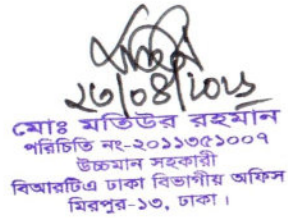 ২৩/০৪/২০২১
মোঃ মতিউর রহমান
পরিচিতি নং-২০১১৩৫১০০৭
উচ্চমান সহকারী
বিআরটিএ ঢাকা বিভাগীয় অফিস
মিরপুর-১৩, ঢাকা।